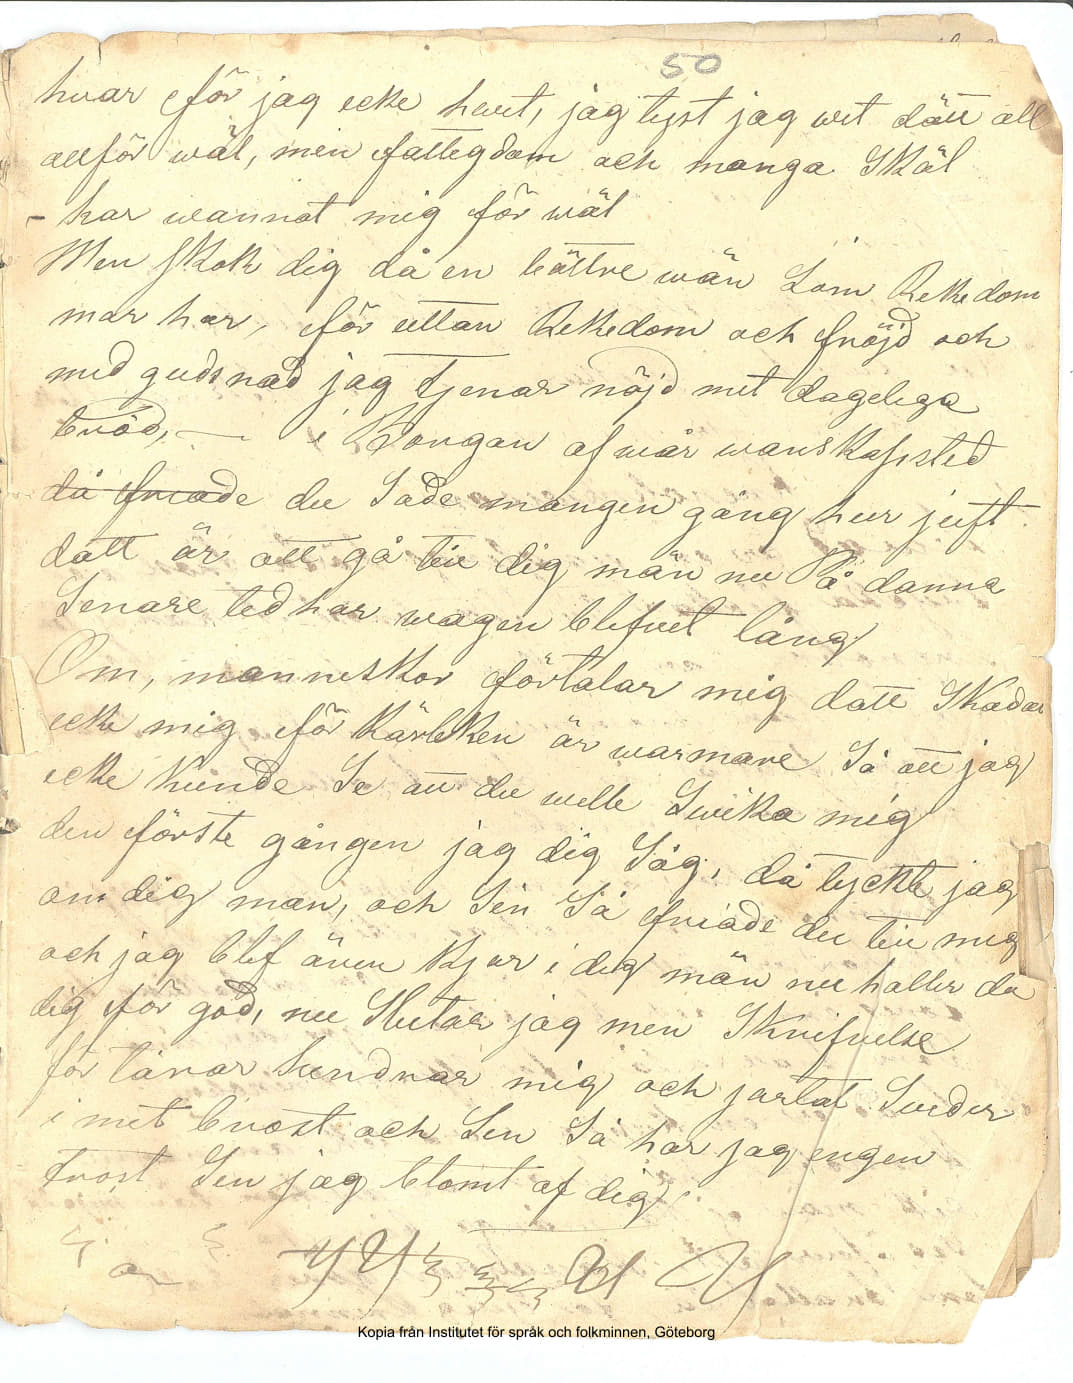 50
hvar för jag ecke hvet, jag tyst jag wet dätt all
allför wäl, men fattegdom och manga Skäl
- har wannat mig för wäl
Men Skok dig då en bättre wän Som Rekedom
mar har, för uttan Rekedom och fröjd och
med gudsnad jag tjenar nöjd met dageliga
bröd, — i Borgan af wår wanskapsted
då friade du Sade mangen gång hur juft
datt är att gå till dig män nu På danna
Senare ted har wagen blefvet lång
Om, manneskor förtalar mig datt Skadar
ecke mig för Kärleken är warmare Så att jag
ecke kunde Se att du welle Swika mig
den förste gången jag dig Såg, då tyckte jag
om dig man, och Sen Så friade du till mig
och jag blef även Kjar i dig män nu haller du
dig för god, nu Slutar jag men Skrifvelse
för tårar hundrar mig och jartat Suder
i met brost och Sen Så har jag engen
trost Sen jag blomt af dig
Kopia från Institutet för språk och folkminnen, Göteborg